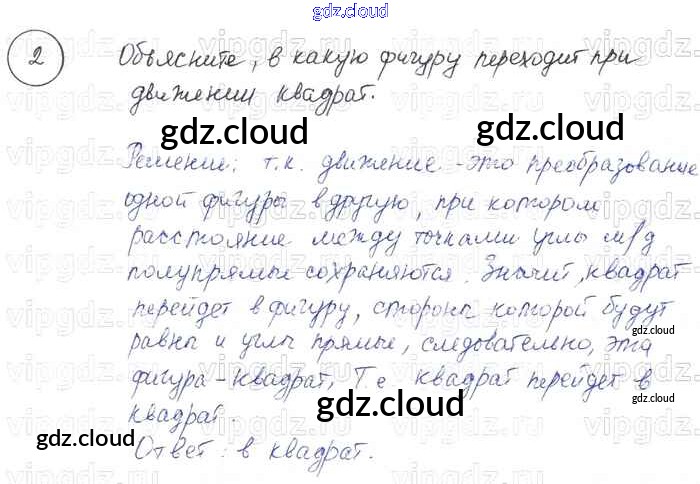 gdz.cloud
2 Объясните, в какую фигуру переходит при
движении квадрат.
gdz.cloud gdz.cloud
Решение: т.к. движение - это преобразование
одной фигуры в другую, при котором
расстояние между точками углы м/д
полупрямые сохраняются. Значит, квадрат
перейдет в фигуру, стороны которой будут
gdz.cloud
равны и углы прямые, следовательно, эта
фигура - квадрат, Т.е. квадрат перейдет в
gdz.cloud
квадрат.
gdz.cloud
Ответ: в квадрат.